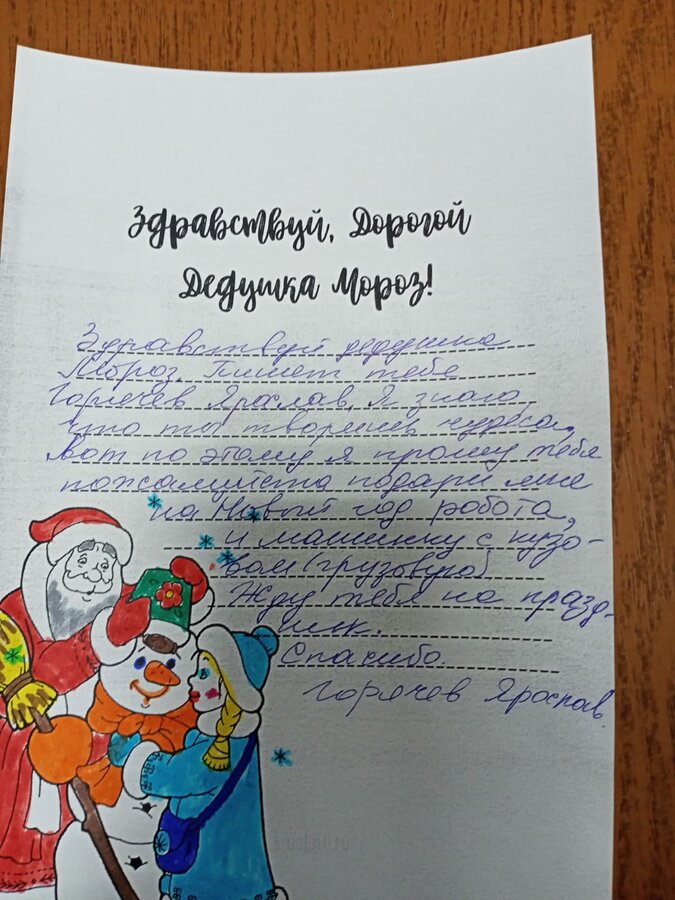 Здравствуй, Дорогой
Дедушка Мороз!
Здравствуй дедушка
Мороз. Пишет тебе
Горячев Ярослав, Я знаю
что ты творишь чудеса,
вот по этому я прошу тебя
пожалуйста подари мне
на Новый год робота,
и машинку с кузо-
вом (грузовую)
Жду тебя на празд-
ник.
Спасибо.
Горячев Ярослав.